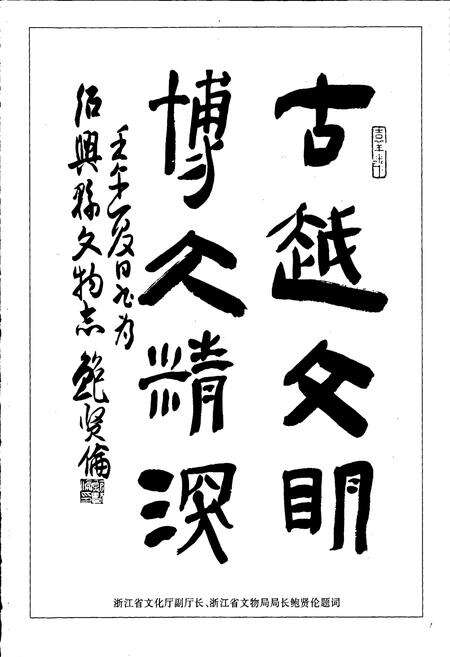 古越文明
博大精深
壬午夏日书为
绍興縣文物志 鮑贤倫
浙江省文化厅副厅长、浙江省文物局局长鲍贤伦题词